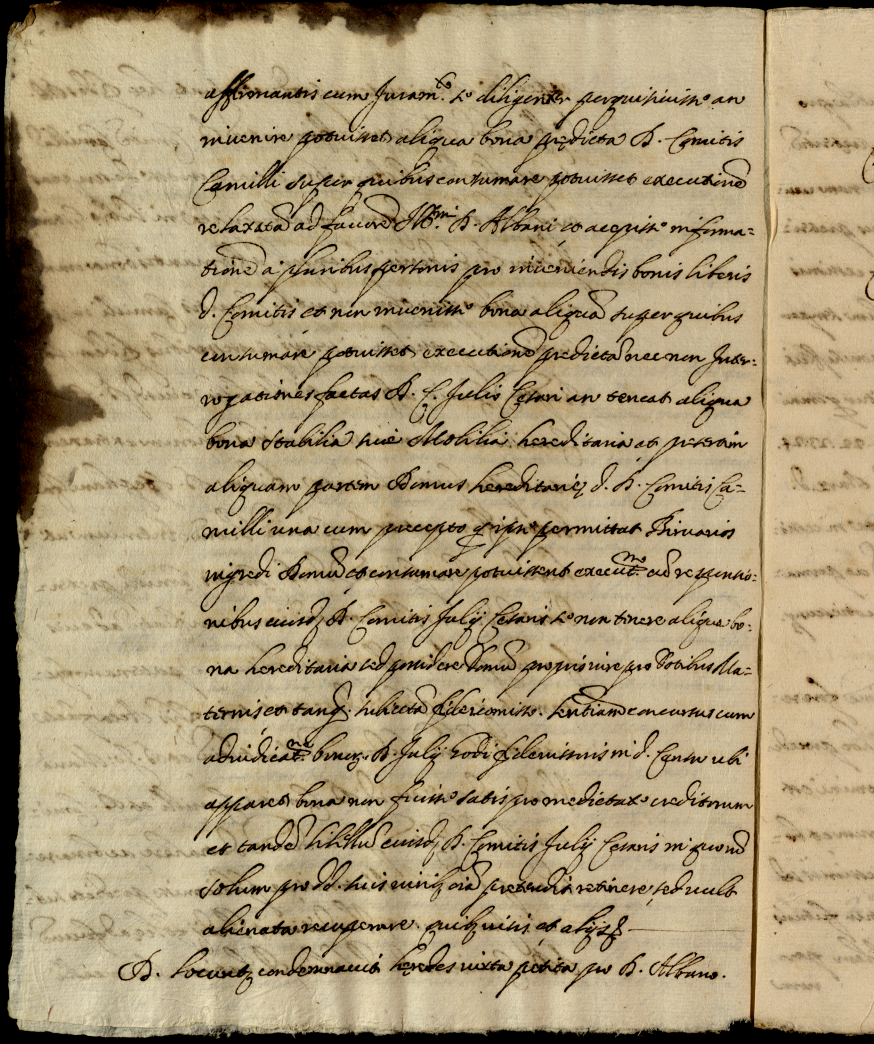 affirmantis cum Juram.to se diligenter perquisivisse an
invenire potuisset aliqua bona predicta D. Comitis
Camilli super quibus consumare potuisset executionē
relaxatā ad favorē Ill.mi D. Albani et accepisse informa=
tionē a pluribus personis pro inveniendis bonis liberis
d. Comitis et non invenisse bona aliqua super quibus
consumare potuisset executionē predictā nec non Inter=
rogationes factas D. C. Julio Cesari an teneat aliqua
bona stabilia sive Mobilia hereditaria et presertim
aliquam partem Domus hereditarię d. D. Comitis Ca=
milli una cum precepto q̄ ipse permittat Birvarios
ingredi Domū et consumare potuissent execut.ne ad responsio=
nibus eiusd. D. Comitis Julij Cesaris se non tenere aliqua bo=
na hereditaria sed possidere Domū proprio iure pro Dotibus Ma=
ternis et tanq. subiectā fideicomisso. Sentiam concursus cum
adiudicat.ne bonor. D. Julij in d. ubi
apparet bona non fuisse satis pro medietate creditorum
et tandē libellū eiusd. D. Comitis Julij Cesaris in quo nō
solum pro DD. suis iurib. oīa pretendit retinere, sed vult
alienata recuperare. quib. visis et alijs
D. locunt. condemnavit heredes iuxta petita pro D. Albano.